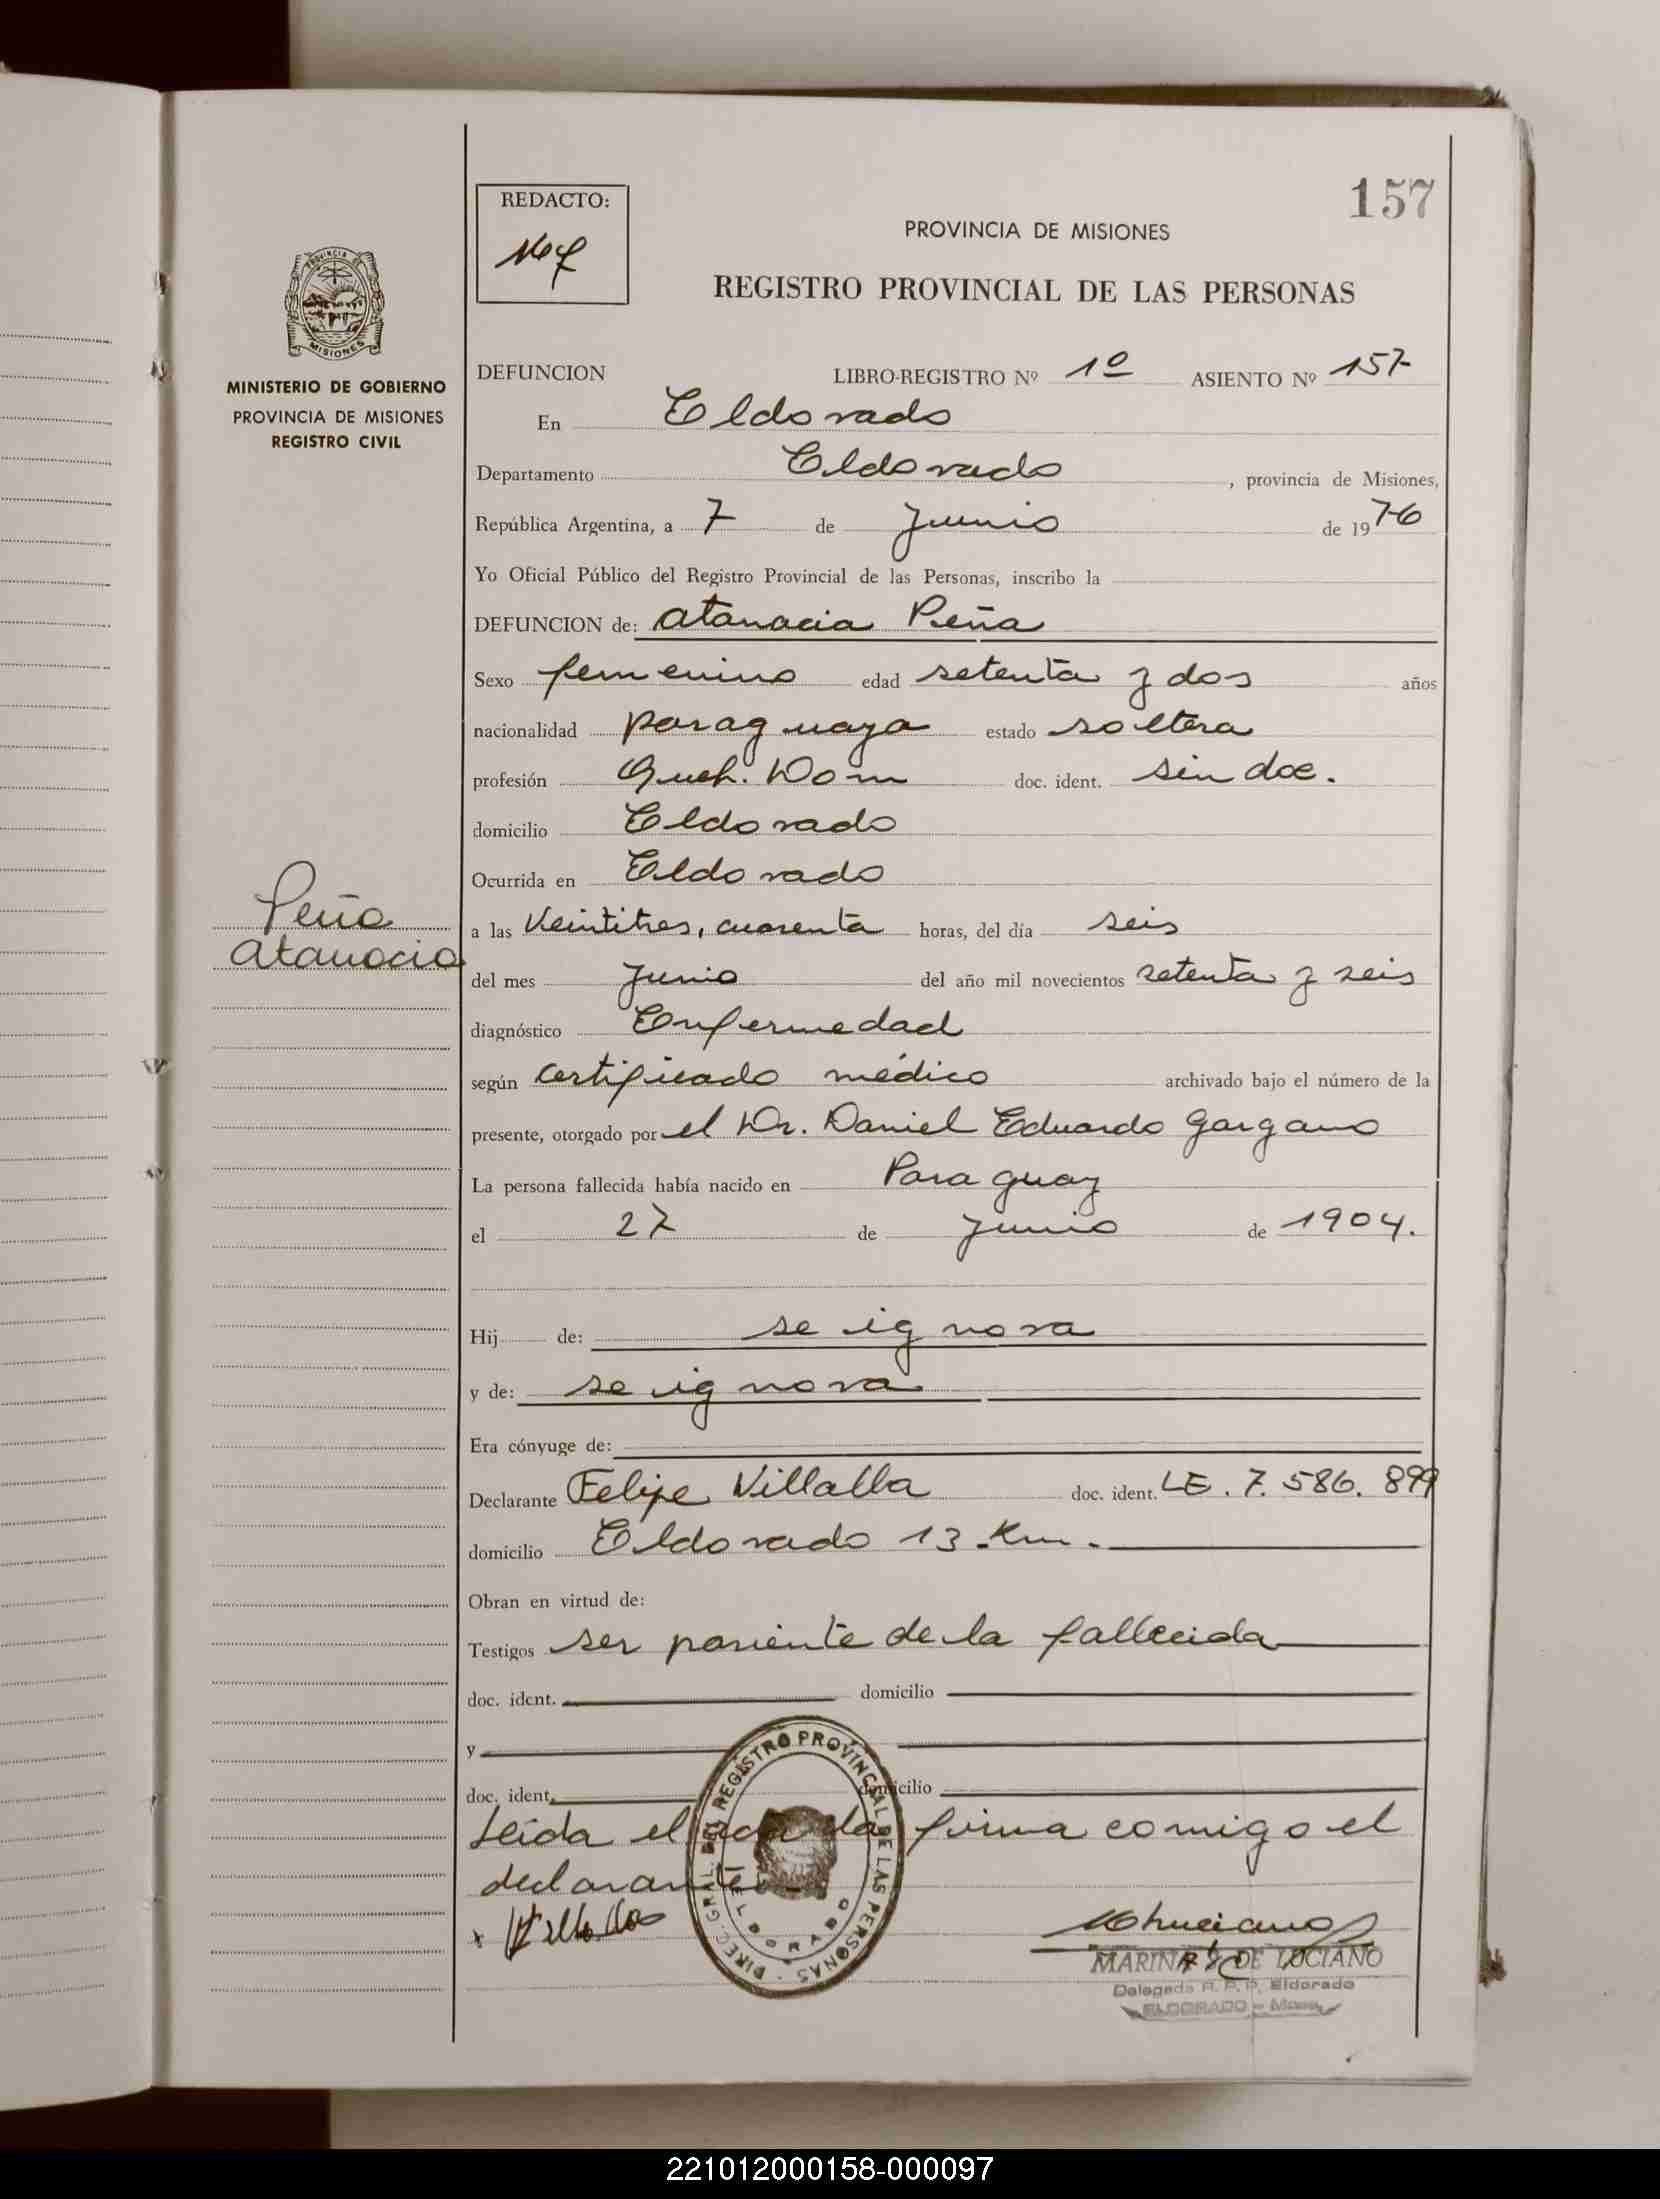 157
REDACTO:
PROVINCIA DE MISIONES
REGISTRO PROVINCIAL DE LAS PERSONAS
PROVINCIA DE
MISIONES
MINISTERIO DE GOBIERNO
PROVINCIA DE MISIONES
REGISTRO CIVIL
DEFUNCION LIBRO-REGISTRO Nº 1º ASIENTO Nº 157
En Eldorado
Departamento Eldorado, provincia de Misiones,
República Argentina, a 7 de Junio de 1976
Yo Oficial Público del Registro Provincial de las Personas, inscribo la
DEFUNCION de: Atanacia Peña
Sexo femenino edad setenta y dos años
nacionalidad paraguaya estado soltera
profesión Queh. Dom doc. ident. sin doc.
domicilio Eldorado
Ocurrida en Eldorado
Peña
Atanacia
a las Veintitres, cuarenta horas, del día seis
del mes Junio del año mil novecientos setenta y seis
diagnóstico Enfermedad
según certificado médico archivado bajo el número de la
presente, otorgado por el Dr. Daniel Eduardo Gargano
La persona fallecida había nacido en Paraguay
el 27 de Junio de 1904.
Hij de: se ignora
y de: se ignora
Era cónyuge de:
Declarante Felipe Villalba doc. ident. LE. 7.586.899
domicilio Eldorado 13 Km.
Obran en virtud de:
Testigos ser pariente de la fallecida
doc. ident. domicilio
y
doc. ident. domicilio
Leida el acta la firma comigo el
declarante
DIREC. GRAL. DEL REGISTRO PROVINCIAL DE LAS PERSONAS
ELDORADO
MARINA DE LUCIANO
Delegada R. P. P. Eldorado
ELDORADO - Mnes.
221012000158-000097